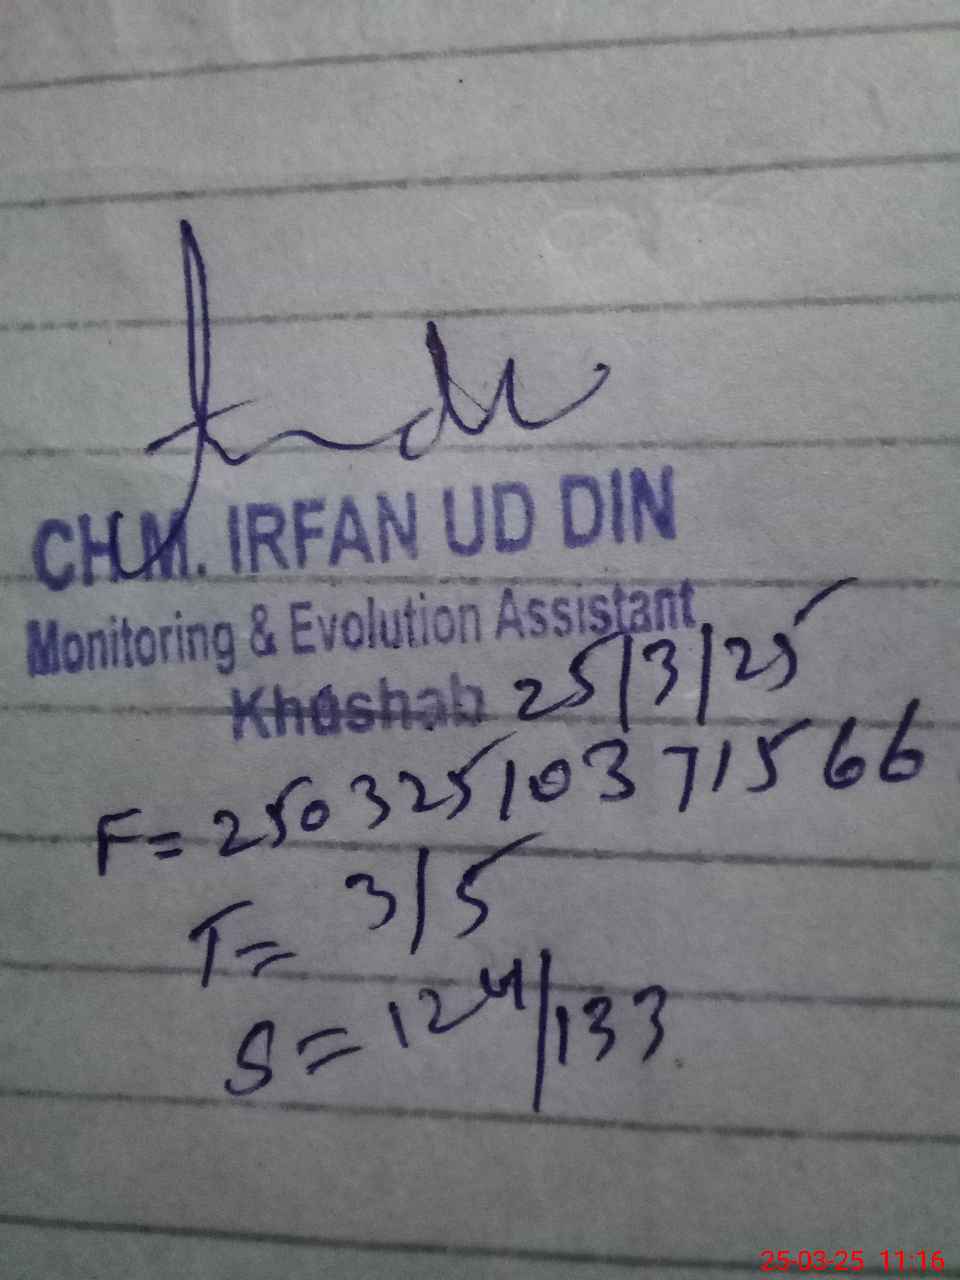 CH.M. IRFAN UD DIN
Monitoring & Evolution Assistant
Khushab 25/3/25
F= 25032510371566
T= 3/5
S= 124/133
25-03-25 11:16